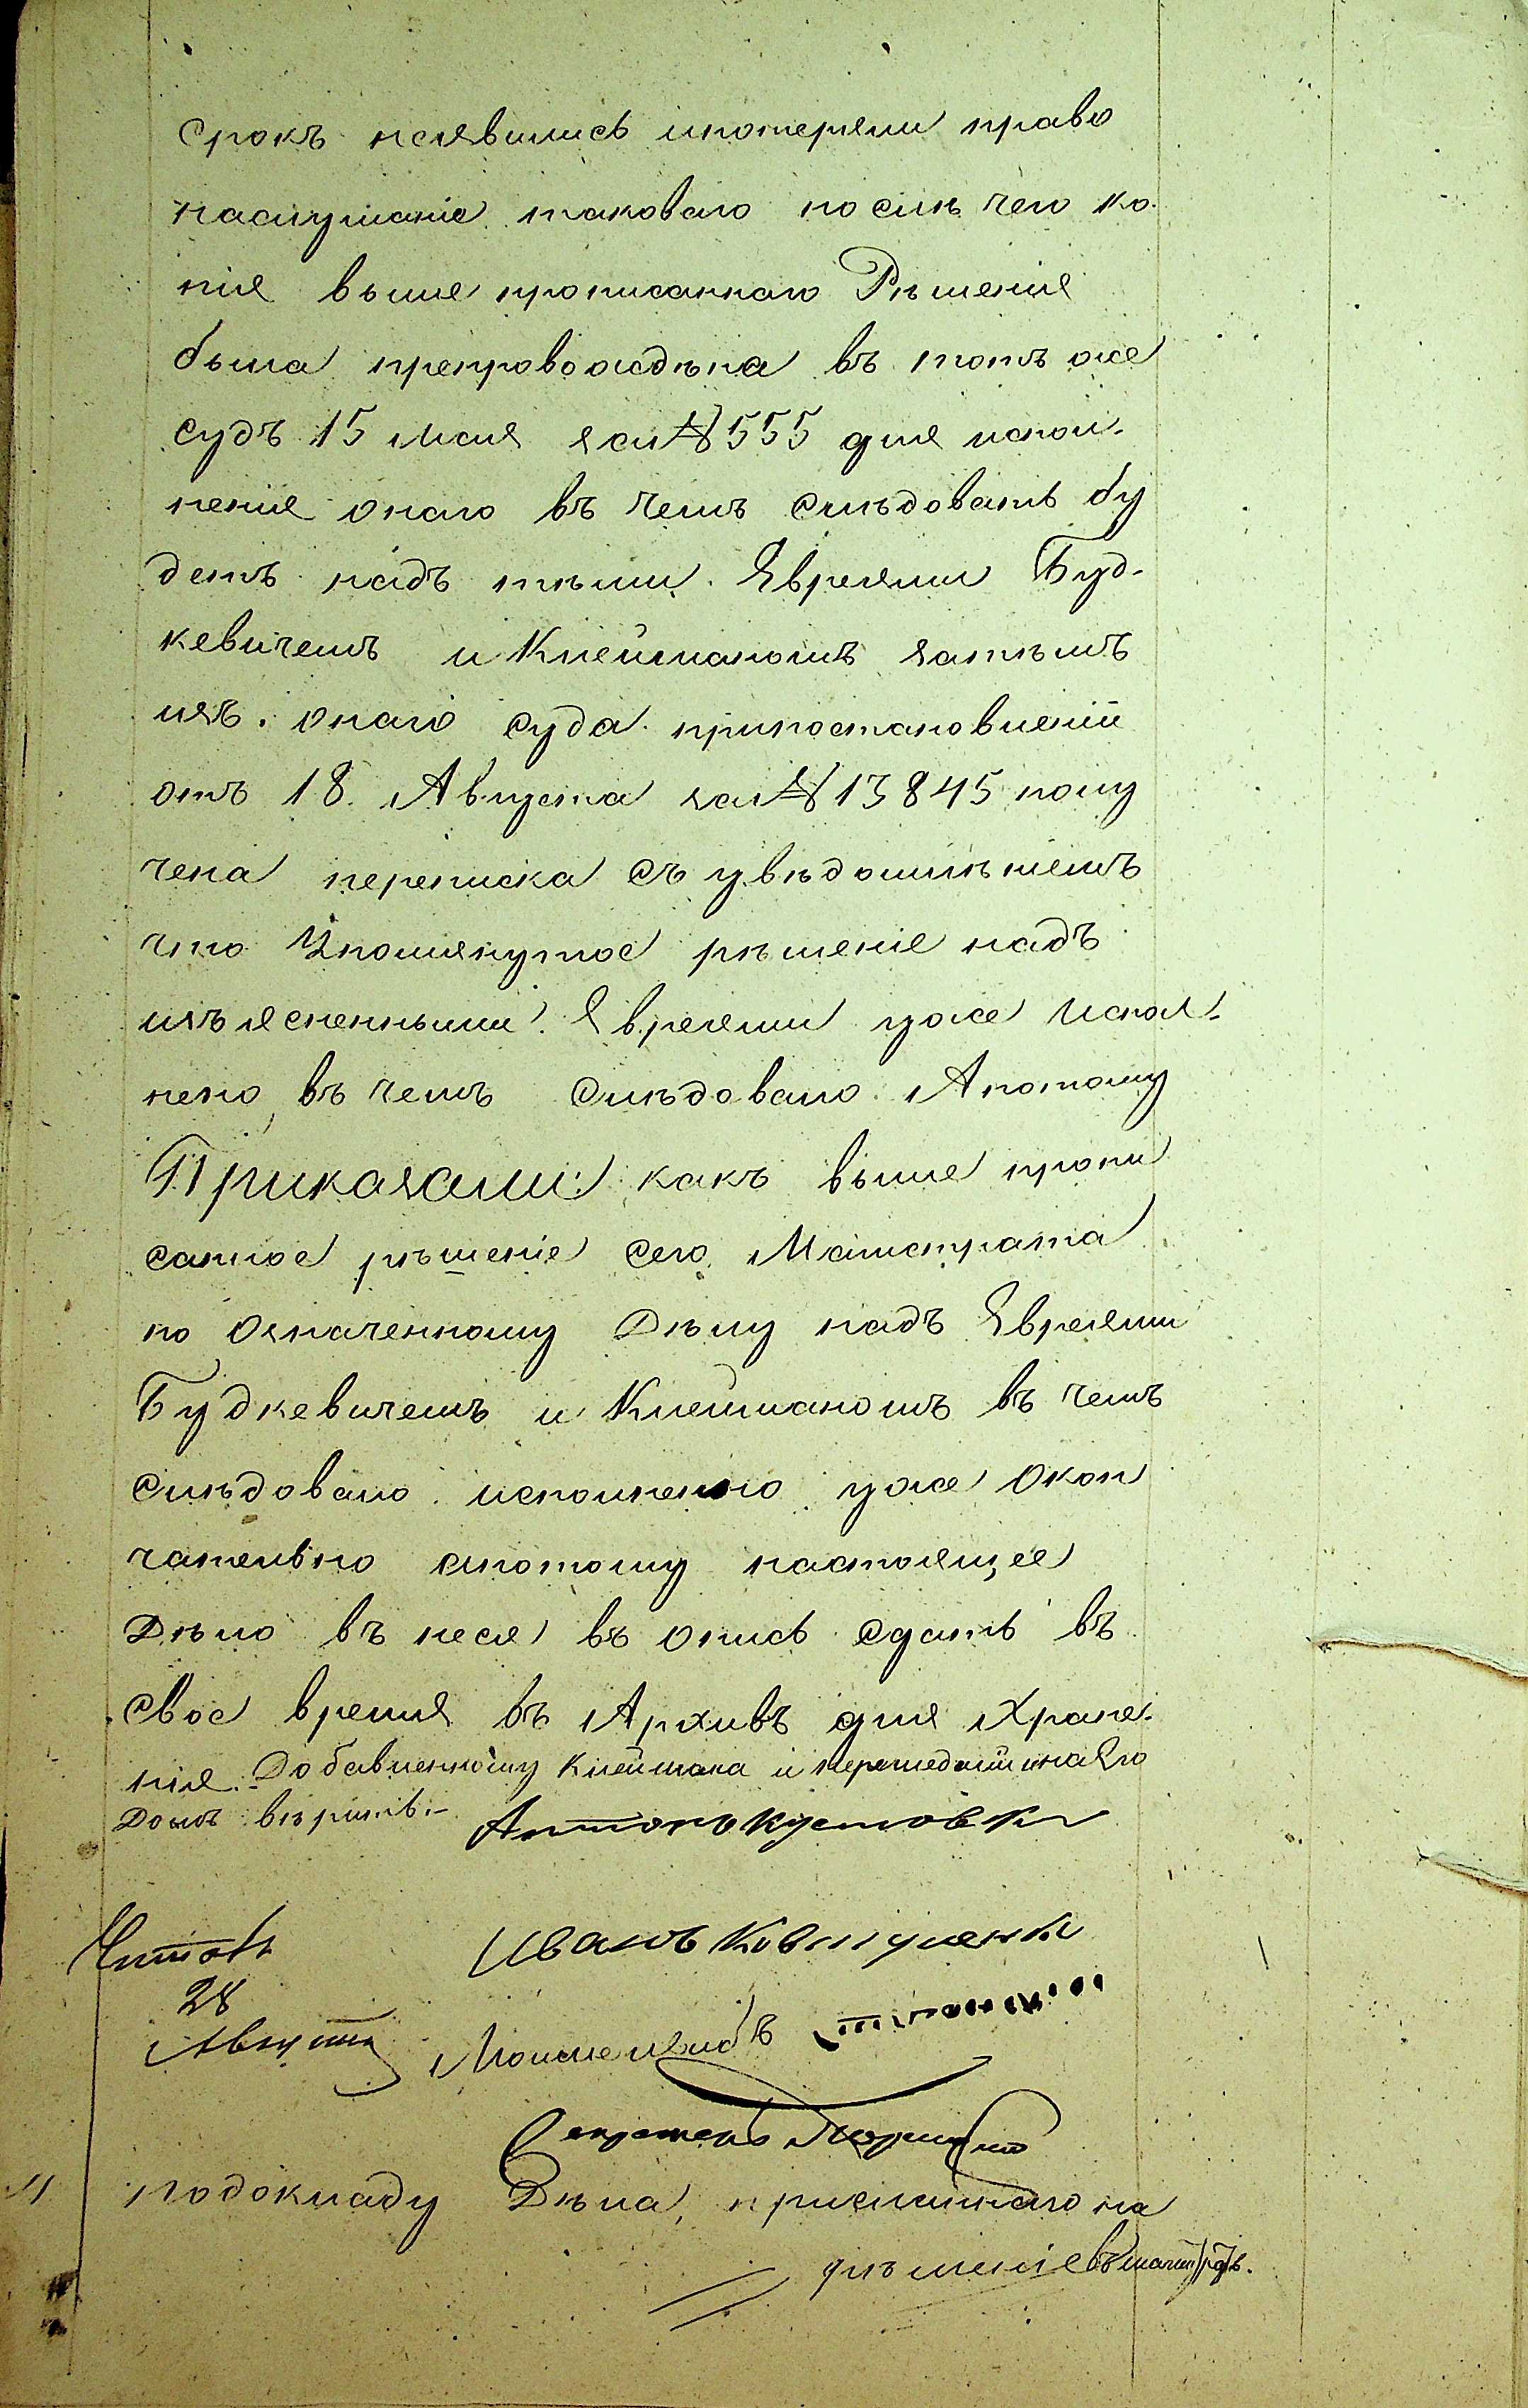 срокъ неявились ипотеряли право
наслушаніе таковаго по силѣ чего ко-
пія выше прописаннаго Рѣшенія
была препровождѣна въ тотъ же
судъ 15 Мая за № 555 для испол-
ненія онаго въ чемъ слѣдовать бу
детъ надъ тѣми Евреями Буд-
кевичемъ и Клейманомъ затѣмъ
изъ онаго суда припостановленіи
отъ 18 Августа за № 13845 полу
чена переписка съ увѣдомлѣніемъ
что Упомянутое рѣшеніе надъ
изъясненными Евреями уже Испол-
нено въ чемъ слѣдовало. Апотому
Приказали: какъ выше пропи
санное рѣшеніе сего Магистрата
по означенному Дѣлу надъ Евреями
Будкевичемъ и Клейманомъ въ чемъ
слѣдовало исполненно уже Окон
чательно апотому настоящее
Дѣло въ неся въ опись сдать въ
свое время въ Архивъ для Хране-
нія. Добавленному Клеймана и перешедшій на Его
Домъ вѣрить.
Антонъ
Иванъ
Читалъ
28
Августа
Секретарь
11 Подокладу Дѣла, присланнаго на
рѣшеніе въ